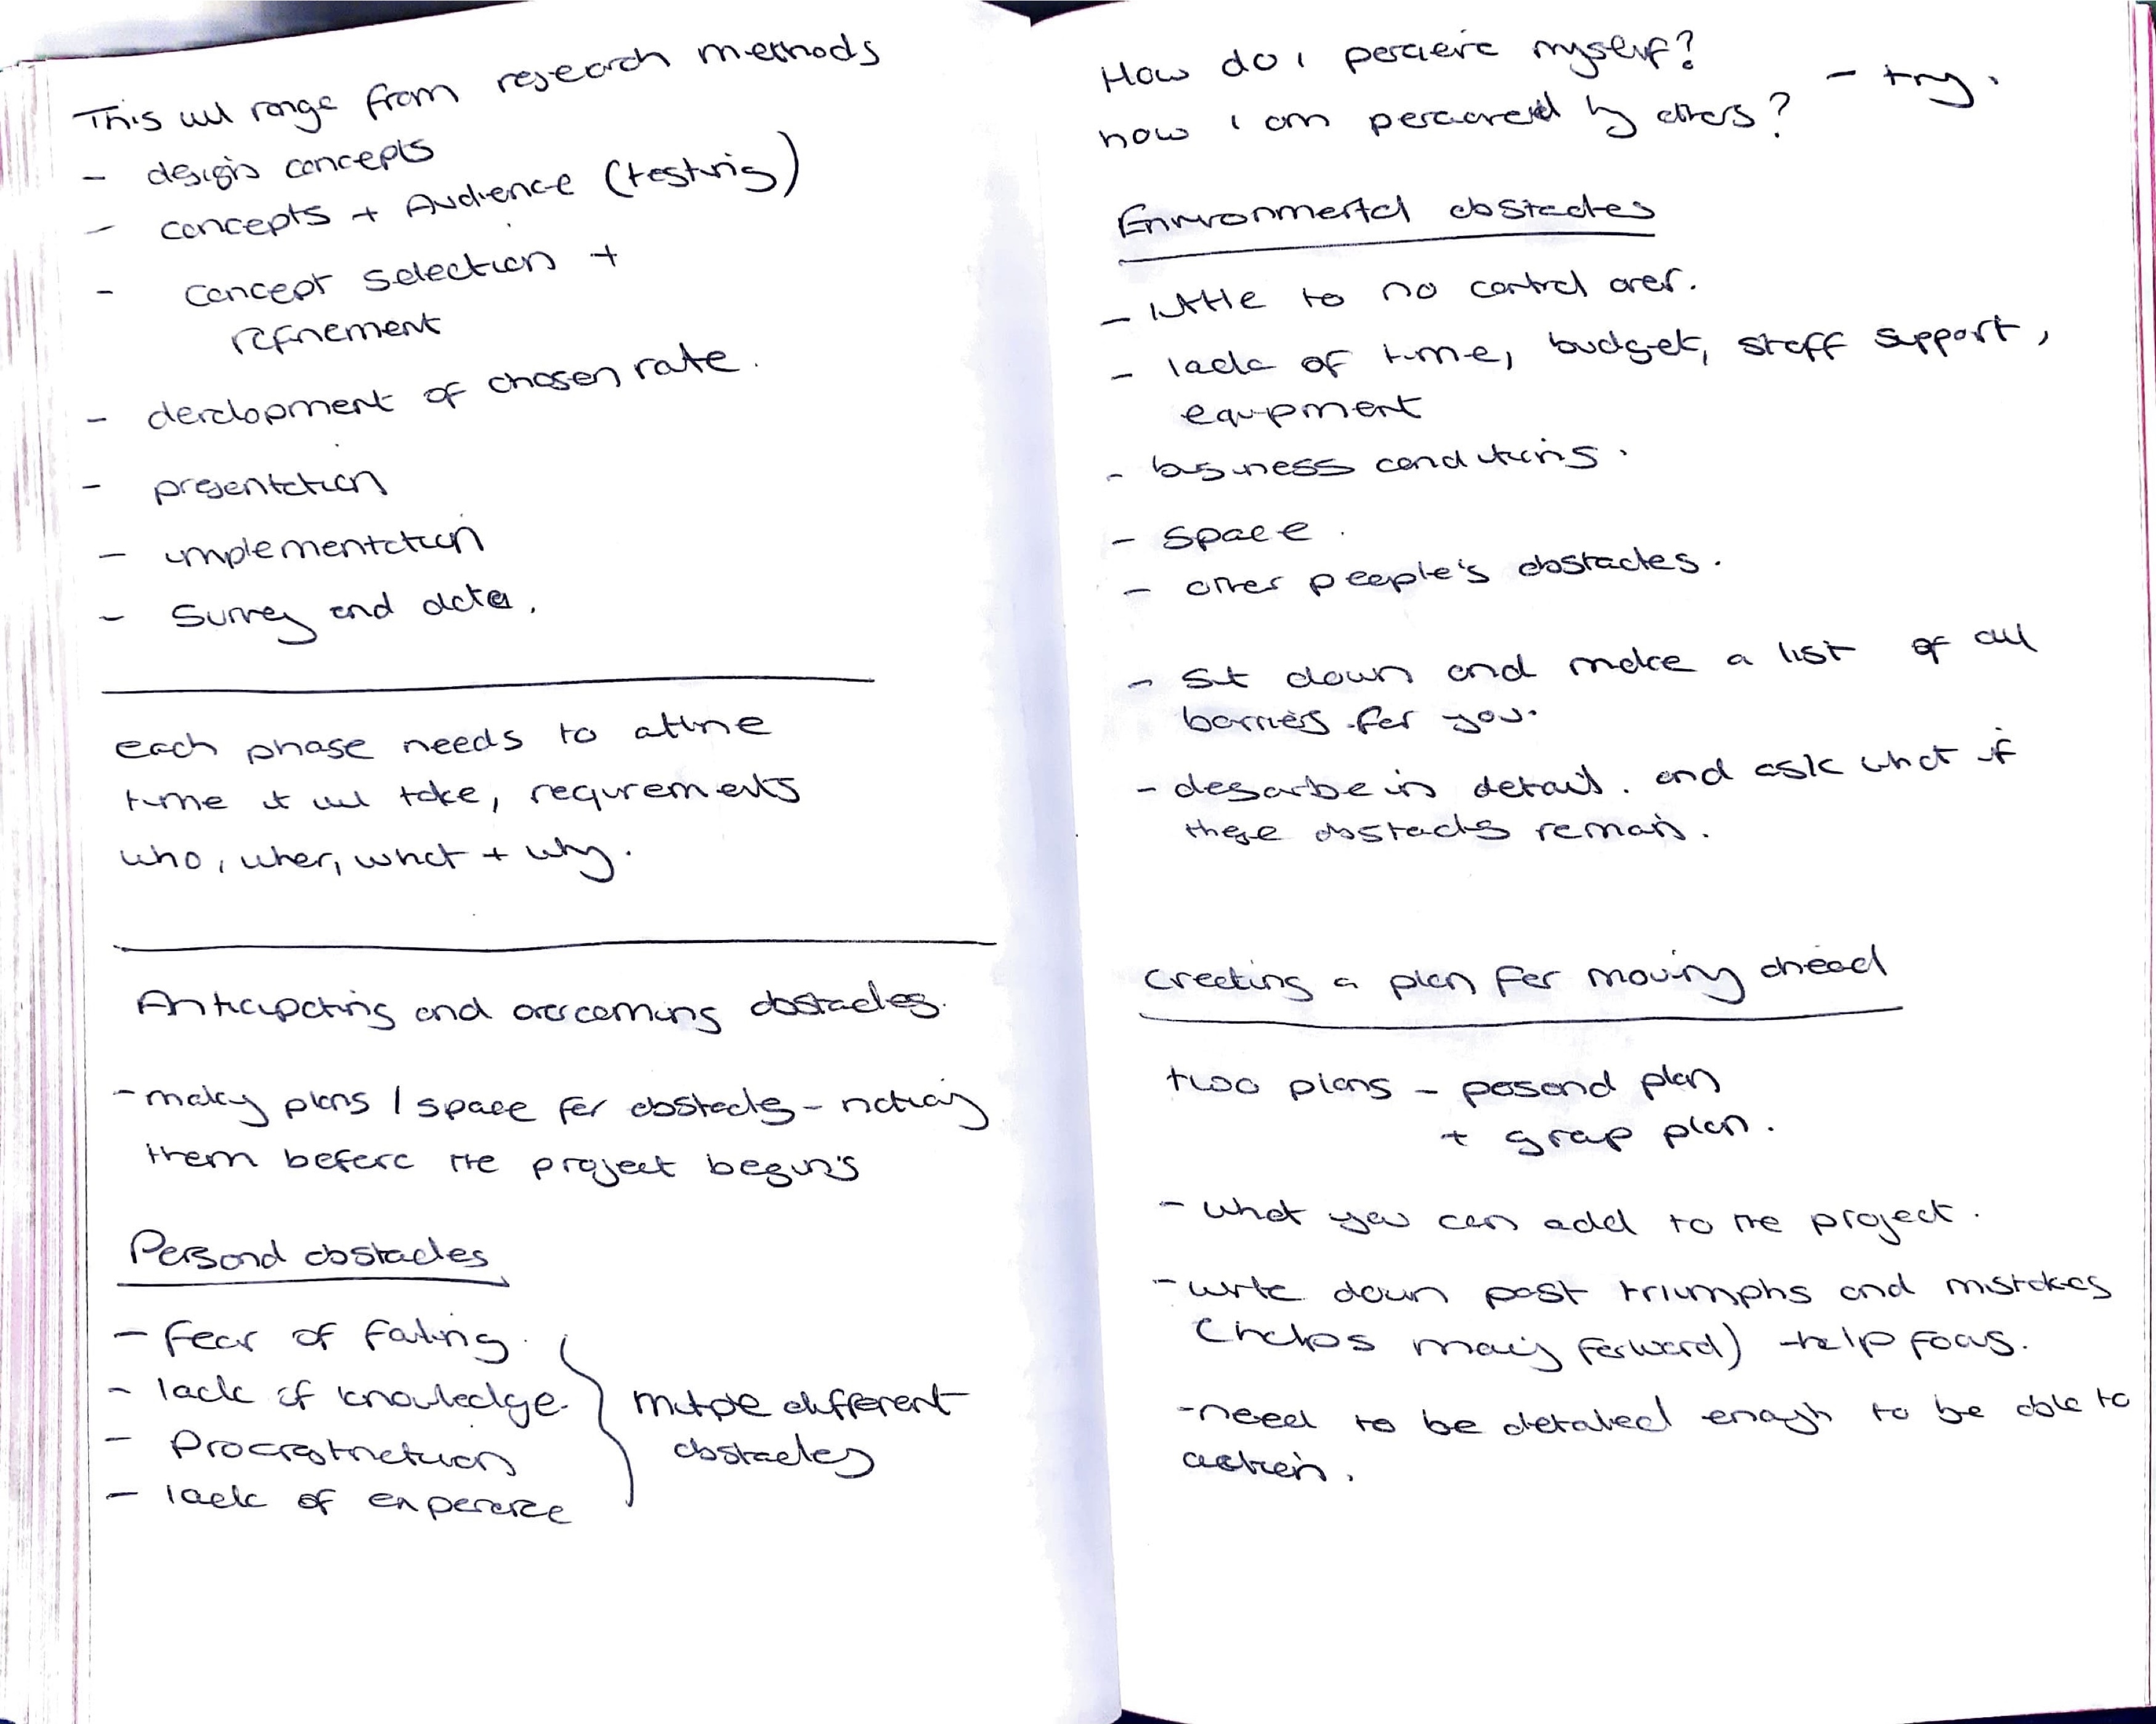 This will range from research methods
- design concepts
- concepts + Audience (testing)
- concept selection +
refinement
- development of chosen rate.
- presentation
- implementation
- Survey and data.
each phase needs to outline
time it will take, requirements
who, when, what + why.
Anticipating and overcoming obstacles.
- making plans / space for obstacles - noticing
them before the project begins
Personal obstacles
- fear of failing.
- lack of knowledge.
- Procrastination
- lack of experience
different
obstacles
How do I percieve myself?
how I am percieved by others? - try.
Environmental obstacles
- little to no control over.
- lack of time, budget, staff support,
equipment
- business conditions.
- space.
- other people's obstacles.
- Sit down and make a list of all
barriers for you.
- describe in detail. and ask what if
these obstacles remain.
Creating a plan for moving ahead
two plans - personal plan
+ group plan.
- what you can add to the project.
- write down past triumphs and mistakes
(helps moving forward) - help focus.
- need to be detailed enough to be able to
action.